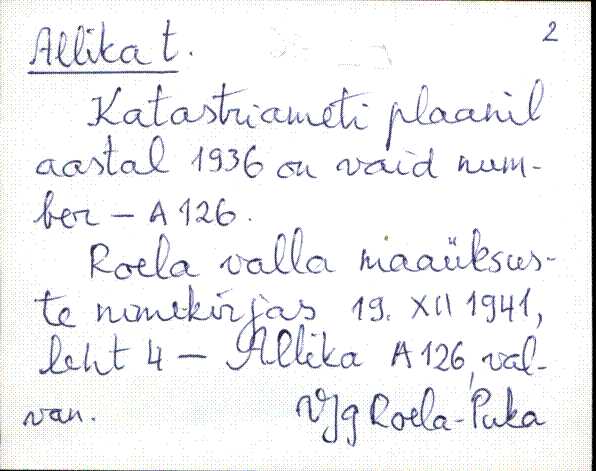 2
Allika t.
Katastriameti plaanil
aastal 1936 on vaid num-
ber – A 126.
Roela valla maaüksus-
te nimekirjas 19. XII 1941,
leht 4 – Allika A 126, val-
van. VJg Roela-Puka